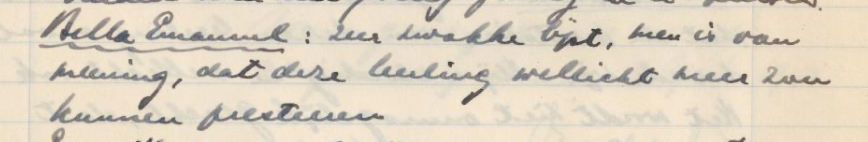 Bella Emanuel: zeer zwakke lijst, men is van
meening, dat deze leerling wellicht meer zou
kunnen presteeren